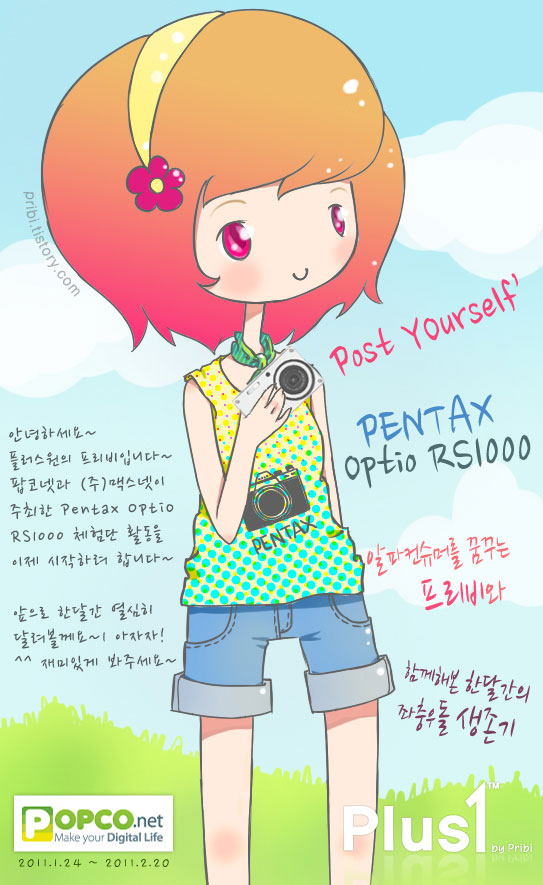 pribi.tistory.com
Post Yourself'
PENTAX
Optio RS1000
안녕하세요~
플러스원의 프리비입니다~
팝코넷과 (주)맥스넷이
주최한 Pentax Optio
RS1000 체험단 활동을
이제 시작하려 합니다~
앞으로 한달간 열심히
달려볼께요~! 아자자!
^^ 재미있게 봐주세요~
PENTAX
알파컨슈머를 꿈꾸는
프리비와
함께해본 한달간의
좌충우돌 생존기
POPCO.net
Make your Digital Life
2011.1.24 ~ 2011.2.20
Plus1™
by Pribi